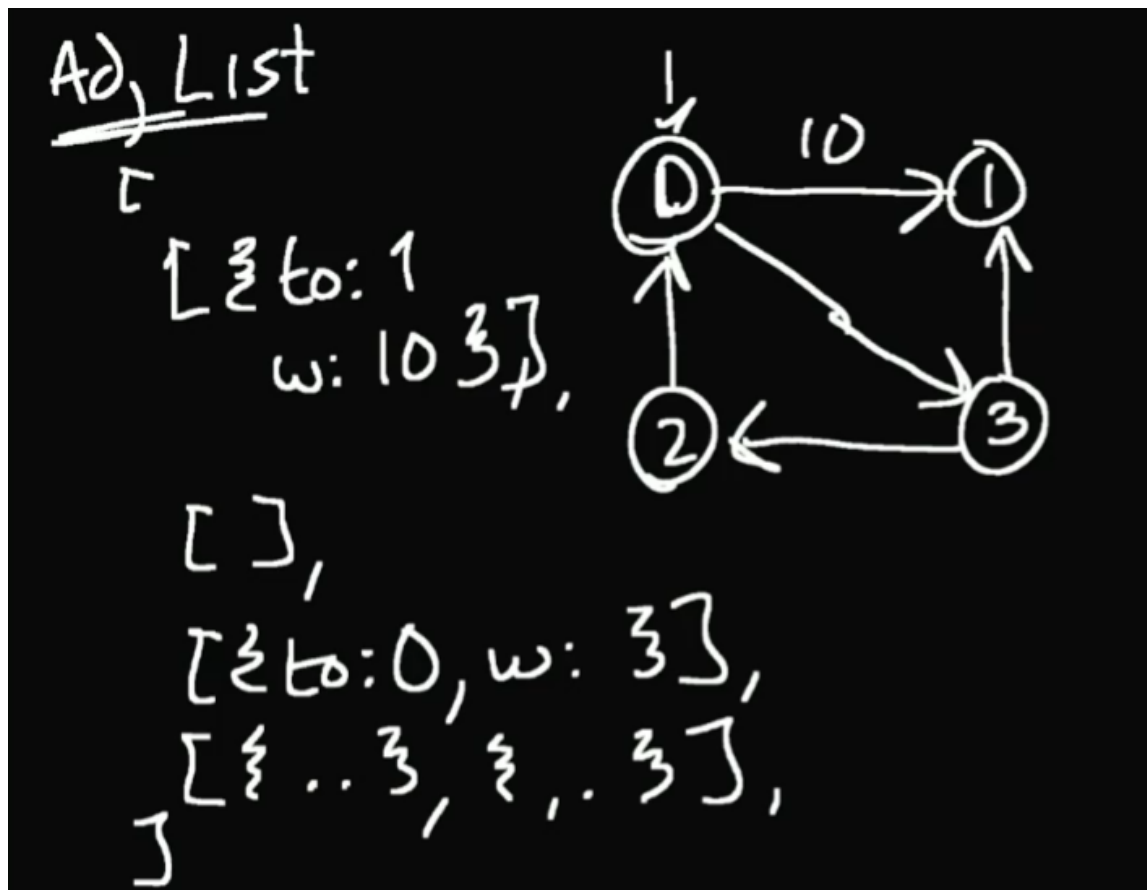 Adj List
[
[{to: 1
w: 10 }],
[ ],
[{to: 0, w: }],
[{..}, {,. }],
]
10
0
1
2
3